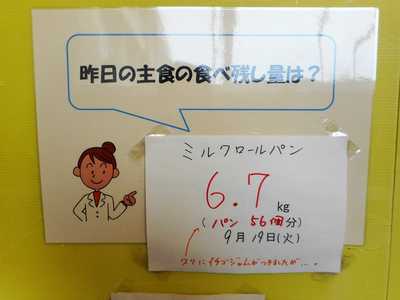 昨日の主食の食べ残し量は？
ミルクロールパン
6.7 kg
(パン 56個分)
9月19日(火)
クラにイチゴジャムがつきましたが…。